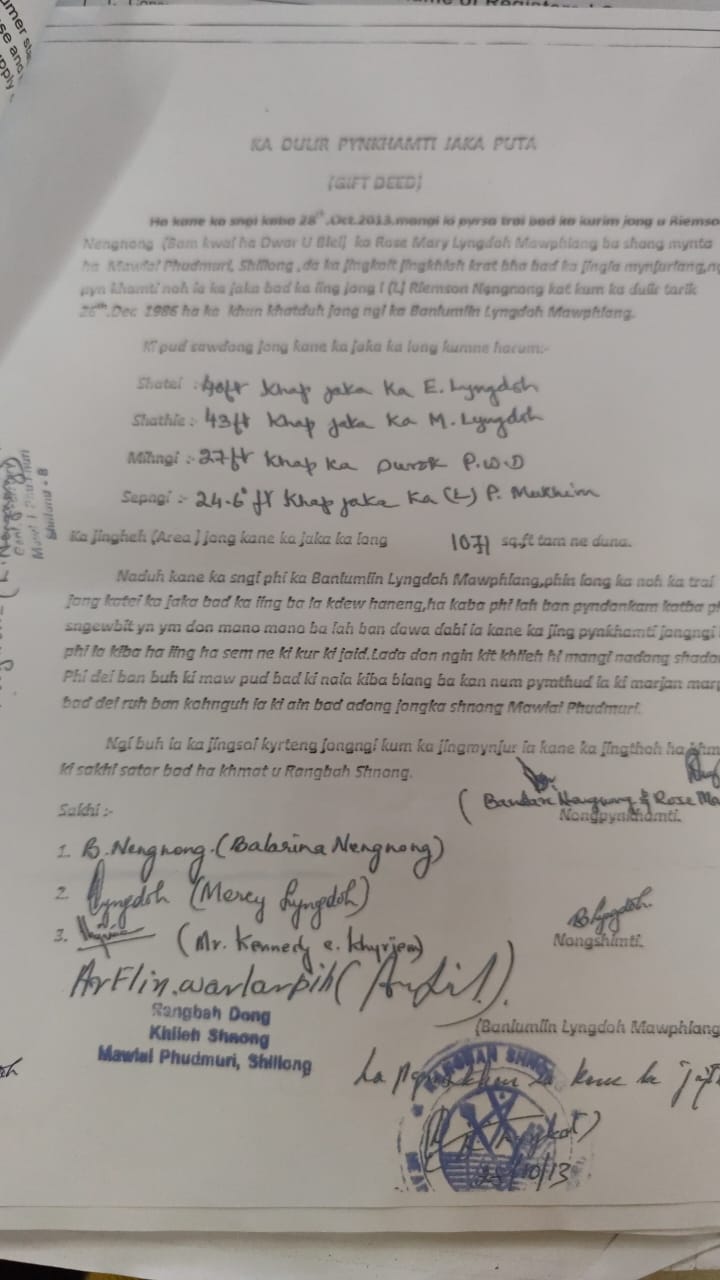 KA DULIR PYNKHAMTI JAKA PUTA
(GIFT DEED)
Ha kane ka sngi kaba 28th.Oct.2013.mangi ia pyrsa trai bad ka kurim jong u Riemso
Nengnong (Bam kwai ha Dwar U Blei) ka Rose Mary Lyngdoh Mawphlang ba shang mynta
ha Mawlai Phudmuri, Shillong ,da ka jingkoit jingkhiah krat bha bad ka jingia mynjurlang,n
pyn khamti noh ia ka jaka bad ka iing jong I (L) Riemson Nengnong kat kum ka dulir tarik
26th.Dec 1986 ha ka khun khatduh jong ngi ka Baniumlin Lyngdoh Mawphlang.
Ki pud sawdong jong kane ka jaka ka long kumne harum:-
Shatei : 40ft Khap jaka Ka E. Lyngdoh
Shathie : 43ft Khap jaka Ka M. Lyngdoh
Mihngi :- 27ft Khap ka Surok P.W.D
Sepngi :- 24.6" ft Khap jaka Ka (L) P. Mukhim
Ka jingheh (Area ) jong kane ka jaka ka long 1071 sq.ft tam ne duna.
Naduh kane ka sngi phi ka Baniumlin Lyngdoh Mawphlang,phin long ka noh ka trai
jong katei ka jaka bad ka iing ba la kdew haneng,ha kaba phi lah ban pyndonkam katba ph
sngewbit yn ym don mano mano ba lah ban dawa dabi ia kane ka jing pynkhamti jongngi
phi la kiba ha iing ha sem ne ki kur ki jaid.Lada don ngin kit khlieh hi mangi nadong shado
Phi dei ban buh ki maw pud bad ki nala kiba biang ba kan num pymthud ia ki marjan mar
bad dei ruh ban kohnguh ia ki ain bad adong jongka shnong Mawlai Phudmuri.
Ngi buh ia ka jingsoi kyrteng jongngi kum ka jingmynjur ia kane ka jingthoh ha khm
ki sakhi sator bad ha khmat u Rangbah Shnong.
Sakhi :-
Rose Ma
Nongpynkhamti.
1. B. Nengnong. (Balarina Nengnong)
2. Lyngdoh (Mercy Lyngdoh)
3. (Mr. Kennedy e. Khyriem)
B Lyngdoh.
Nongshimti.
ArFlin.warlarpih
Rangbah Dong
Khlieh Shnong
Mawlai Phudmuri, Shillong
(Baniumlin Lyngdoh Mawphlang
RANGBAH SHNONG
25/10/13